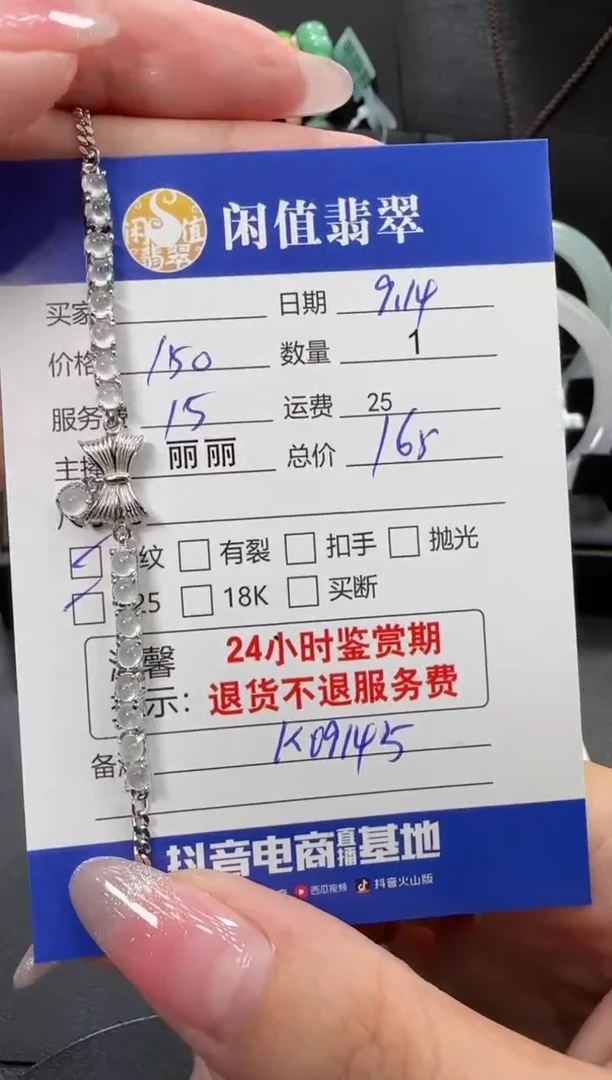 闲值翡翠
闲值翡翠
买家 日期 9.14
价格 150 数量 1
服务费 15 运费 25
主播 丽丽 总价 165
纹 有裂 扣手 抛光
25 18K 买断
温馨 24小时鉴赏期
示: 退货不退服务费
备注 K09145
抖音电商直播基地
西瓜视频 抖音火山版